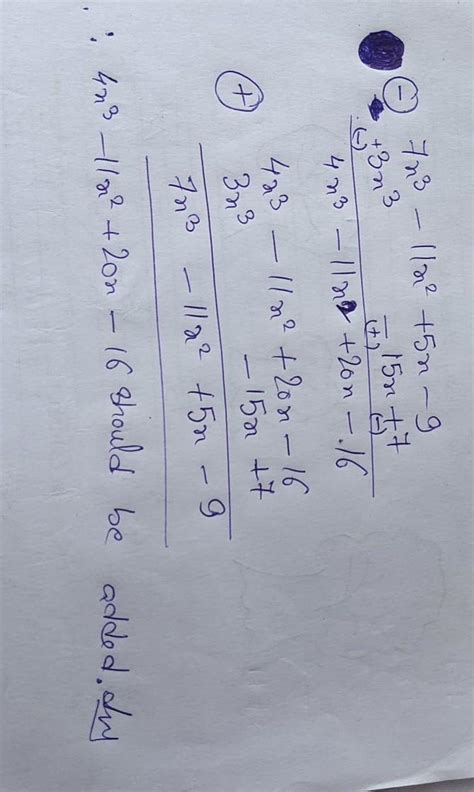 ⊖ 7x³ − 11x² + 5x − 9
+3x³ − 15x + 7
(−) (+) (−)
4x³ − 11x² + 20x − 16
4x³ − 11x² + 20x − 16
⊕ 3x³ − 15x + 7
7x³ − 11x² + 5x − 9
∴ 4x³ − 11x² + 20x − 16 should be added.